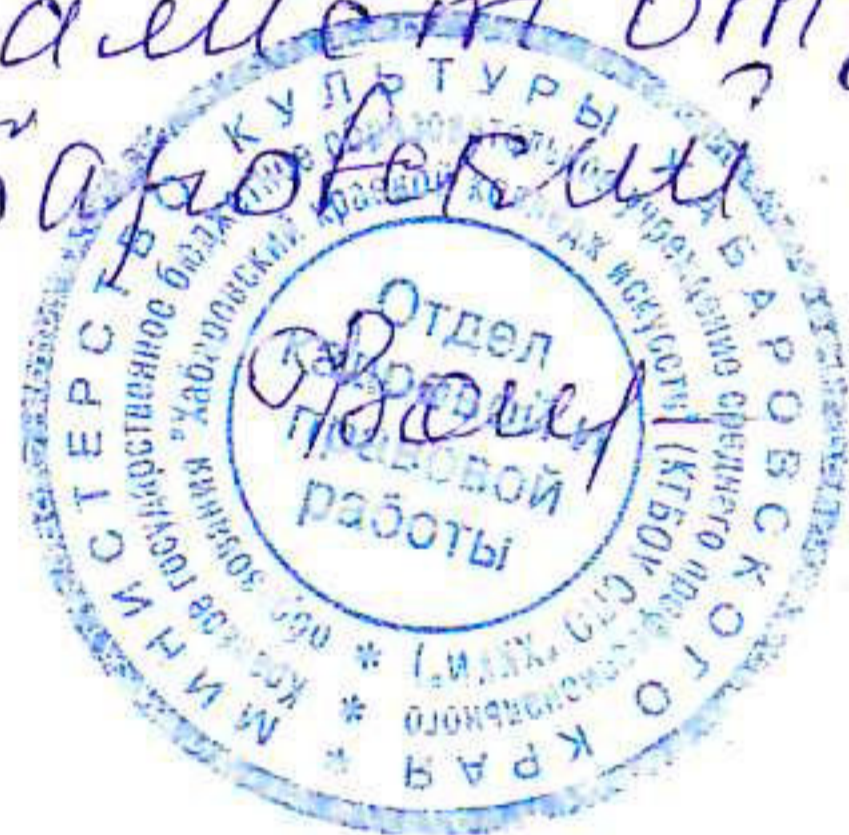 баровский
МИНИСТЕРСТВО КУЛЬТУРЫ ХАБАРОВСКОГО КРАЯ *
Краевое государственное бюджетное образовательное учреждение среднего профессионального
образования "Хабаровский краевой колледж искусств" (КГБОУ СПО "ХККИ") *
Отдел
кадровой и
правовой
работы